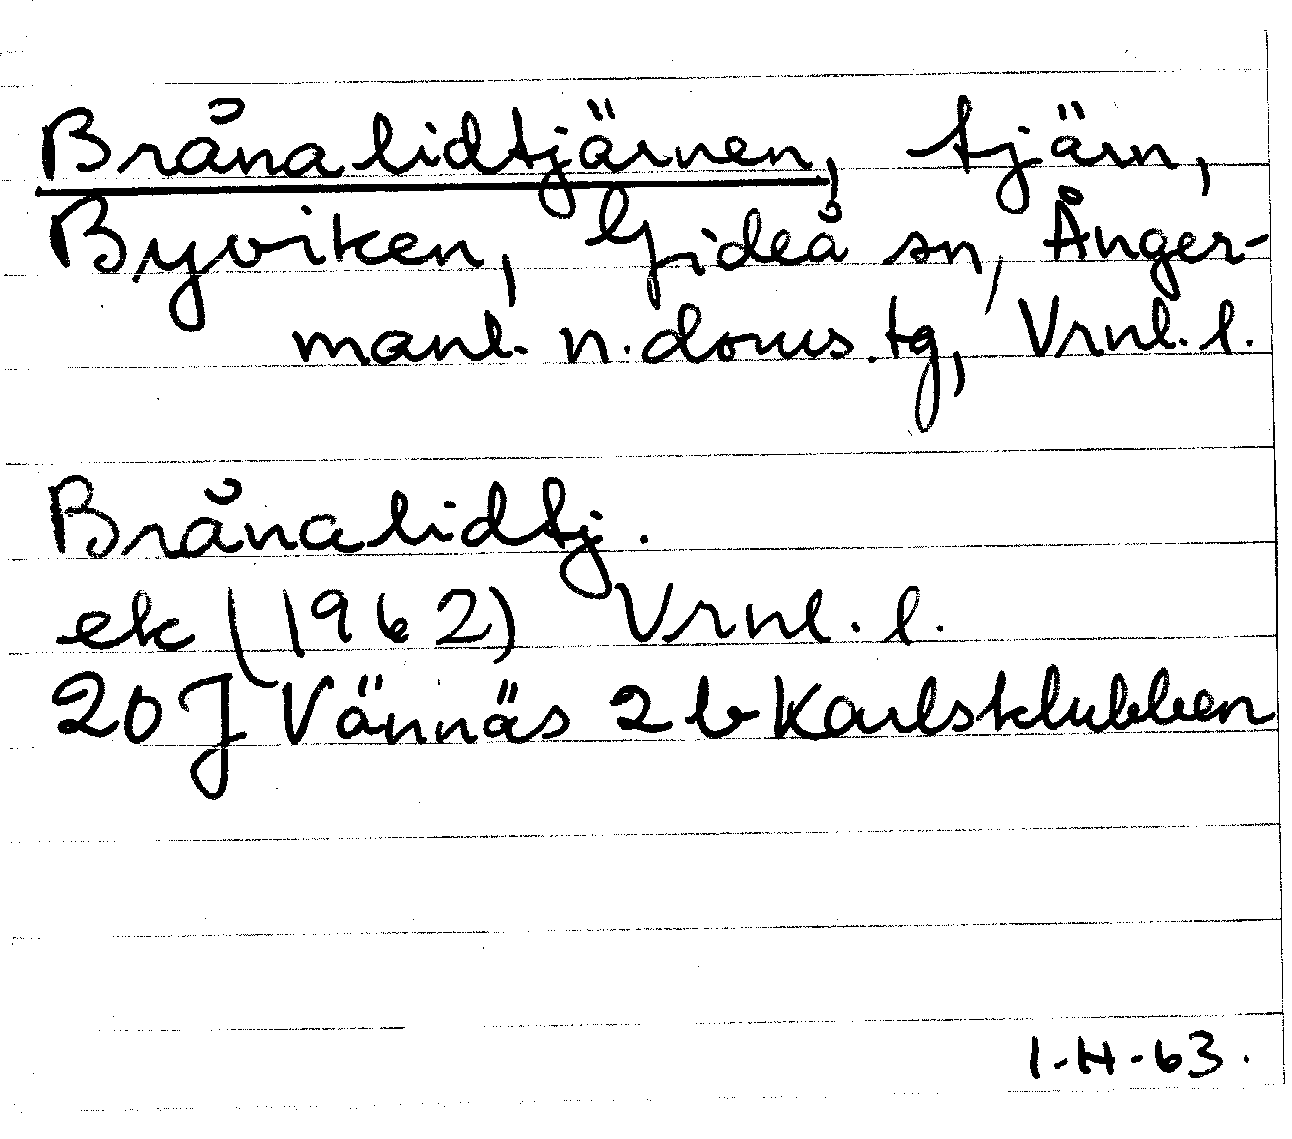 Brånalidtjärnen, tjärn,
Byviken, Gideå sn, Ånger-
manl. n. doms.tg, Vrnl. l.
Brånalidtj.
ek (1962) Vrnl. l.
20 J Vännäs 2 b Karlsklubben
I-H-63.